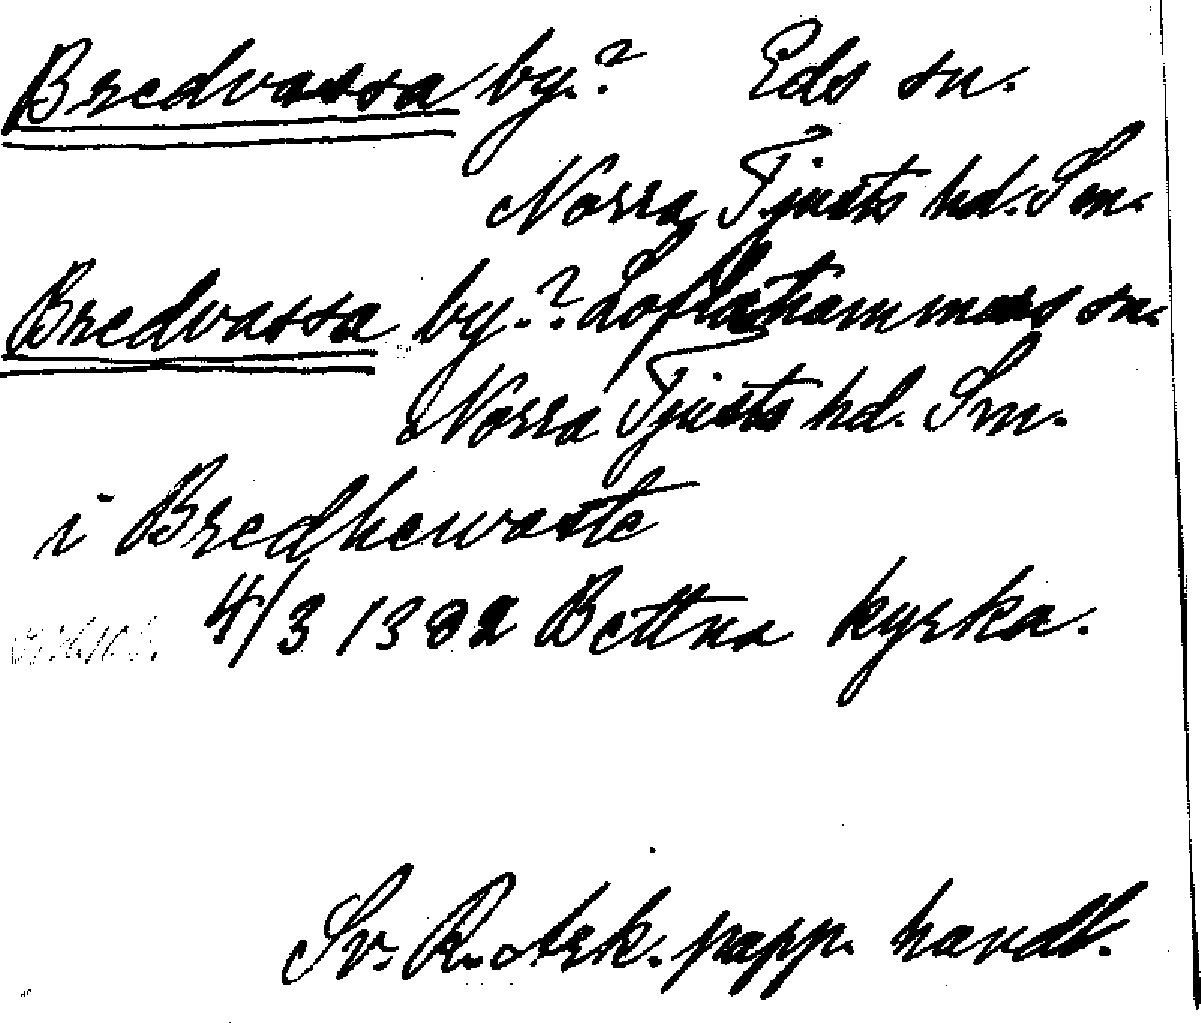 Bredvassa by.? Eds sn.
Norra Tjusts hd. Sm.
Bredvassa by.? Loftahammars sn.
Norra Tjusts hd. Sm.
i Bredhewaste
4/3 1382 Bettna kyrka.
Sv. R. Ark. papp. handl.